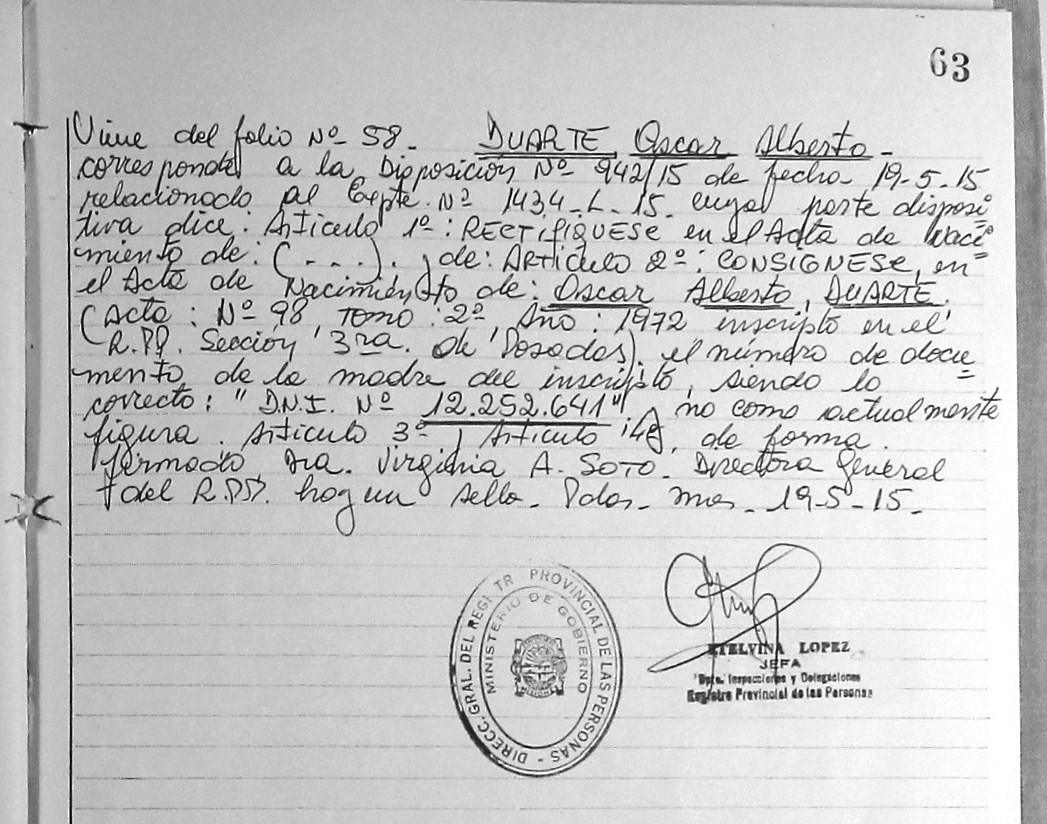 63
Viene del folio Nº 58. DUARTE Oscar Alberto -
corresponde a la Disposición Nº 942/15 de fecha 19-5-15
relacionado al Expte. Nº 1434-L-15. cuya parte disposi
tiva dice: Artículo 1º: RECTIFIQUESE en el Acta de Naci=
miento de: (- - -). de: ARTículo 2º: CONSIGNESE, en
el Acta de Nacimiento de: Oscar Alberto, DUARTE.
(Acta: Nº 98, Tomo: 2º, Año: 1972 inscripto en el
R.PP. Sección 3ra. de Posadas). el número de docu=
mento de la madre del inscripto, siendo lo
correcto: "D.N.I. Nº 12.252.641" y no como actualmente
figura. Artículo 3º y Artículo 4º, de forma.
firmado Dra. Virginia A. SOTO. Directora General
del R.PP. hay un sello. Pdas. mnes. 19-5-15.
DIRECC. GRAL. DEL REGITR PROVINCIAL DE LAS PERSONAS -
MINISTERIO DE GOBIERNO
ETELVINA LOPEZ
JEFA
Dpto. Inspecciones y Delegaciones
Registro Provincial de las Personas